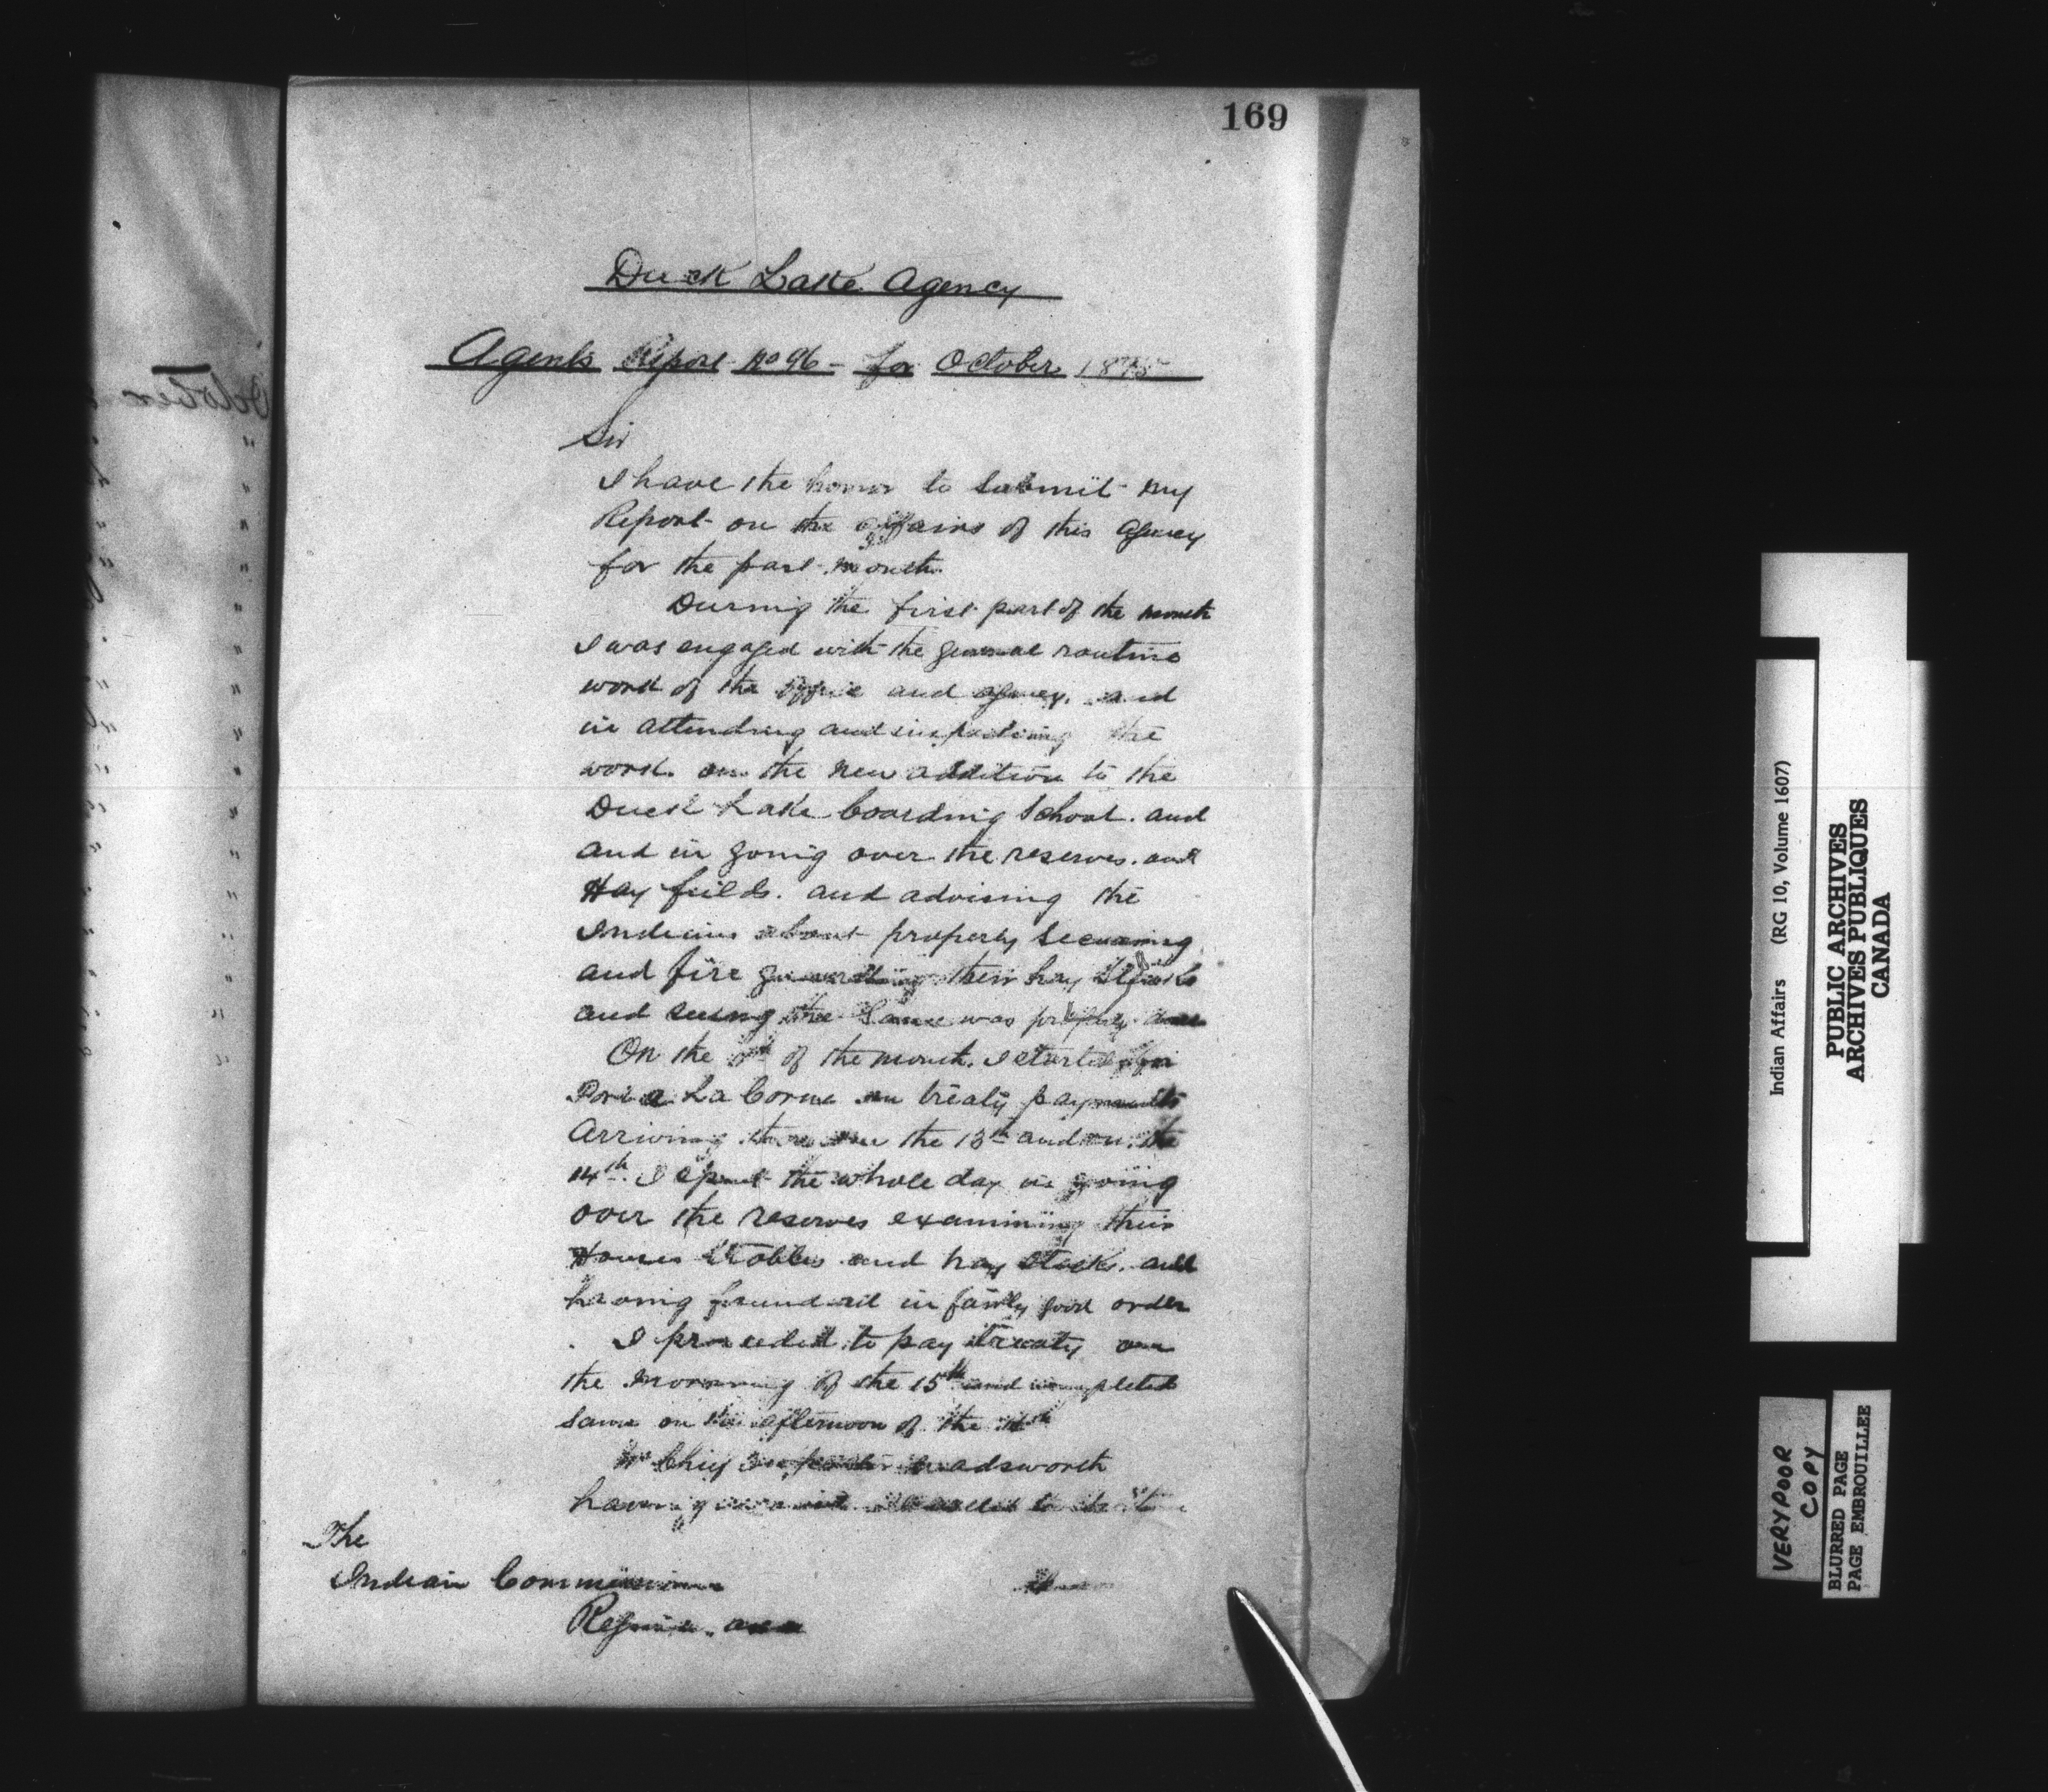 169
Duck Lake Agency
Agents Report No 96 - for October 1895
Sir
I have the honor to submit my
Report on the affairs of this Agency
for the past month.
During the first part of the month
I was engaged with the general routine
work of the office and agency. and
in attending and inspecting the
work. on the new addition to the
Duck Lake boarding School. and
and in going over the reserves. and
Hay feilds. and advising the
Indians about properly securing
and fire guarding their hay stacks
and seeing the same was properly
On the of the month. I started for
La Corne on treaty payments
Arriving there on the 13th and on the
14th. I spent the whole day in going
over the reserves examining their
Houses Stables and hay stacks. and
having found all in fairly good order
I proceeded to pay treaty on
the morning of the 15th and completed
same on the afternoon of the
Mr Chief Inspector Wadsworth
having
The
Indian Commissioner
Regina. Assa
October
Indian Affairs (RG 10, Volume 1607)
PUBLIC ARCHIVES
ARCHIVES PUBLIQUES
CANADA
VERY POOR
COPY
BLURRED PAGE
PAGE EMBROUILLEE